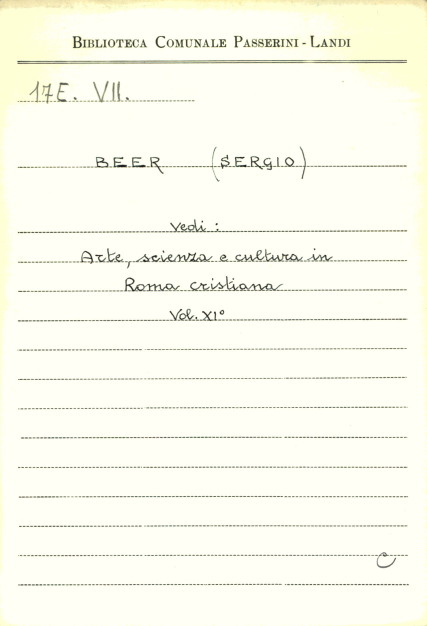 BIBLIOTECA COMUNALE PASSERINI - LANDI
17E. VII.
BEER (SERGIO)
Vedi :
Arte, scienza e cultura in
Roma cristiana
Vol. XI°
C